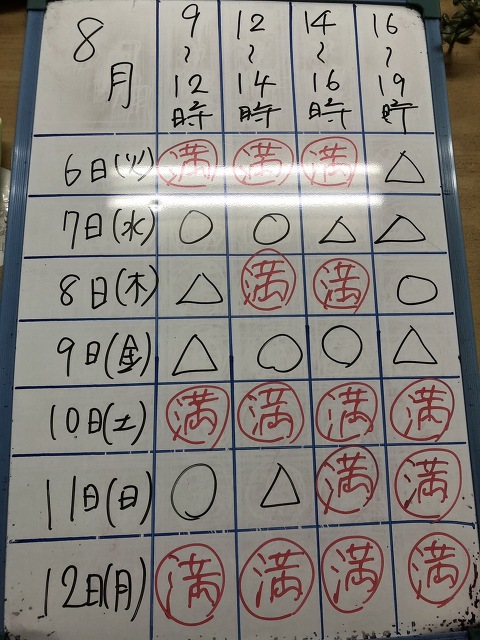 8月 9~12時 12~14時 14~16時 16~19時
6日(火) 満 満 満 △
7日(水) ○ ○ △ △
8日(木) △ 満 満 ○
9日(金) △ ○ ○ △
10日(土) 満 満 満 満
11日(日) ○ △ 満 満
12日(月) 満 満 満 満